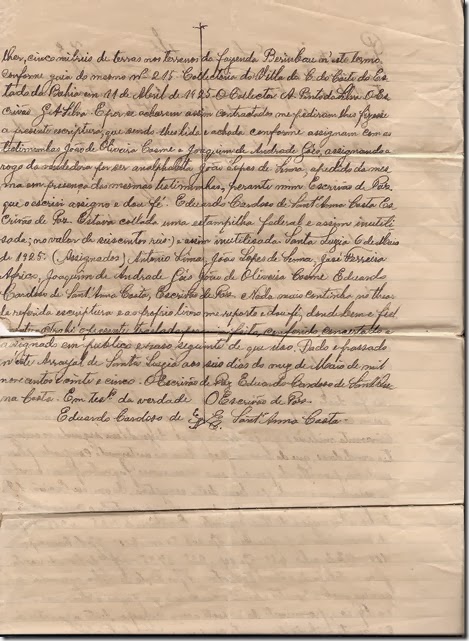 lher, cinco mil reis de terras nos terrenos da fazenda Berinbau n'este termo,
conforme guia do mesmo nº 215 Collectoria da Villa de C. do Coité do Es-
tado da Bahia em 11 de Abril de 1925. O Collector A. Pinto da Silva. O Es-
crivão G. A. Silva. E por se acharem assim contractados me pediram lhes fizesse
a presente escriptura, que sendo lhes lida e achada conforme assignam com as
testimunhas João de Oliveira Cosme e Joaquim de Andrade Góes, assignando a
rogo da vendedora por ser analphabeta João Lopes de Lima, a pedido da mes-
ma em presença das mesmas testimunhas, perante mim Escrivão de Paz
que o escrevi assigno e dou fé. Eduardo Cardoso de Sant' Anna Costa Es-
crivão de Paz. Estava collada uma estampilha federal e assim inutili-
sada; no valor de seiscentos reis) e assim inutilisada. Santa Luzia 6 de Maio
de 1925. (Assignados) Antonio Lima, João Lopes de Lima, José Ferreira
Joaquim de Andrade Góes João de Oliveira Cosme Eduardo
Cardoso de Sant' Anna Costa, Escrivão de Paz. E Nada mais continha
referida escriptura e ao proprio livro me reporto e dou fé, donde bem e fiel
o presente traslado
assignado em publico e raso seguinte de que uso. Dado e passado
n'este Arraial de Santa Luzia aos seis dias do mez de Maio de mil
novecentos e vinte e cinco. O Escrivão de Paz Eduardo Cardoso de Sant' An-
na Costa. Em testº da verdade O Escrivão de Paz.
Eduardo Cardoso de Sant' Anna Costa.